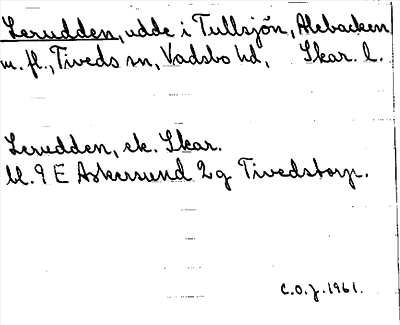 Lerudden, udde i Tullsjön, Alebacken
m. fl., Tiveds sn, Vadsbo hd, Skar. l.
Lerudden, ek. Skar.
bl. 9 E Askersund 2 g Tivedstorp.
C.O.J. 1961.